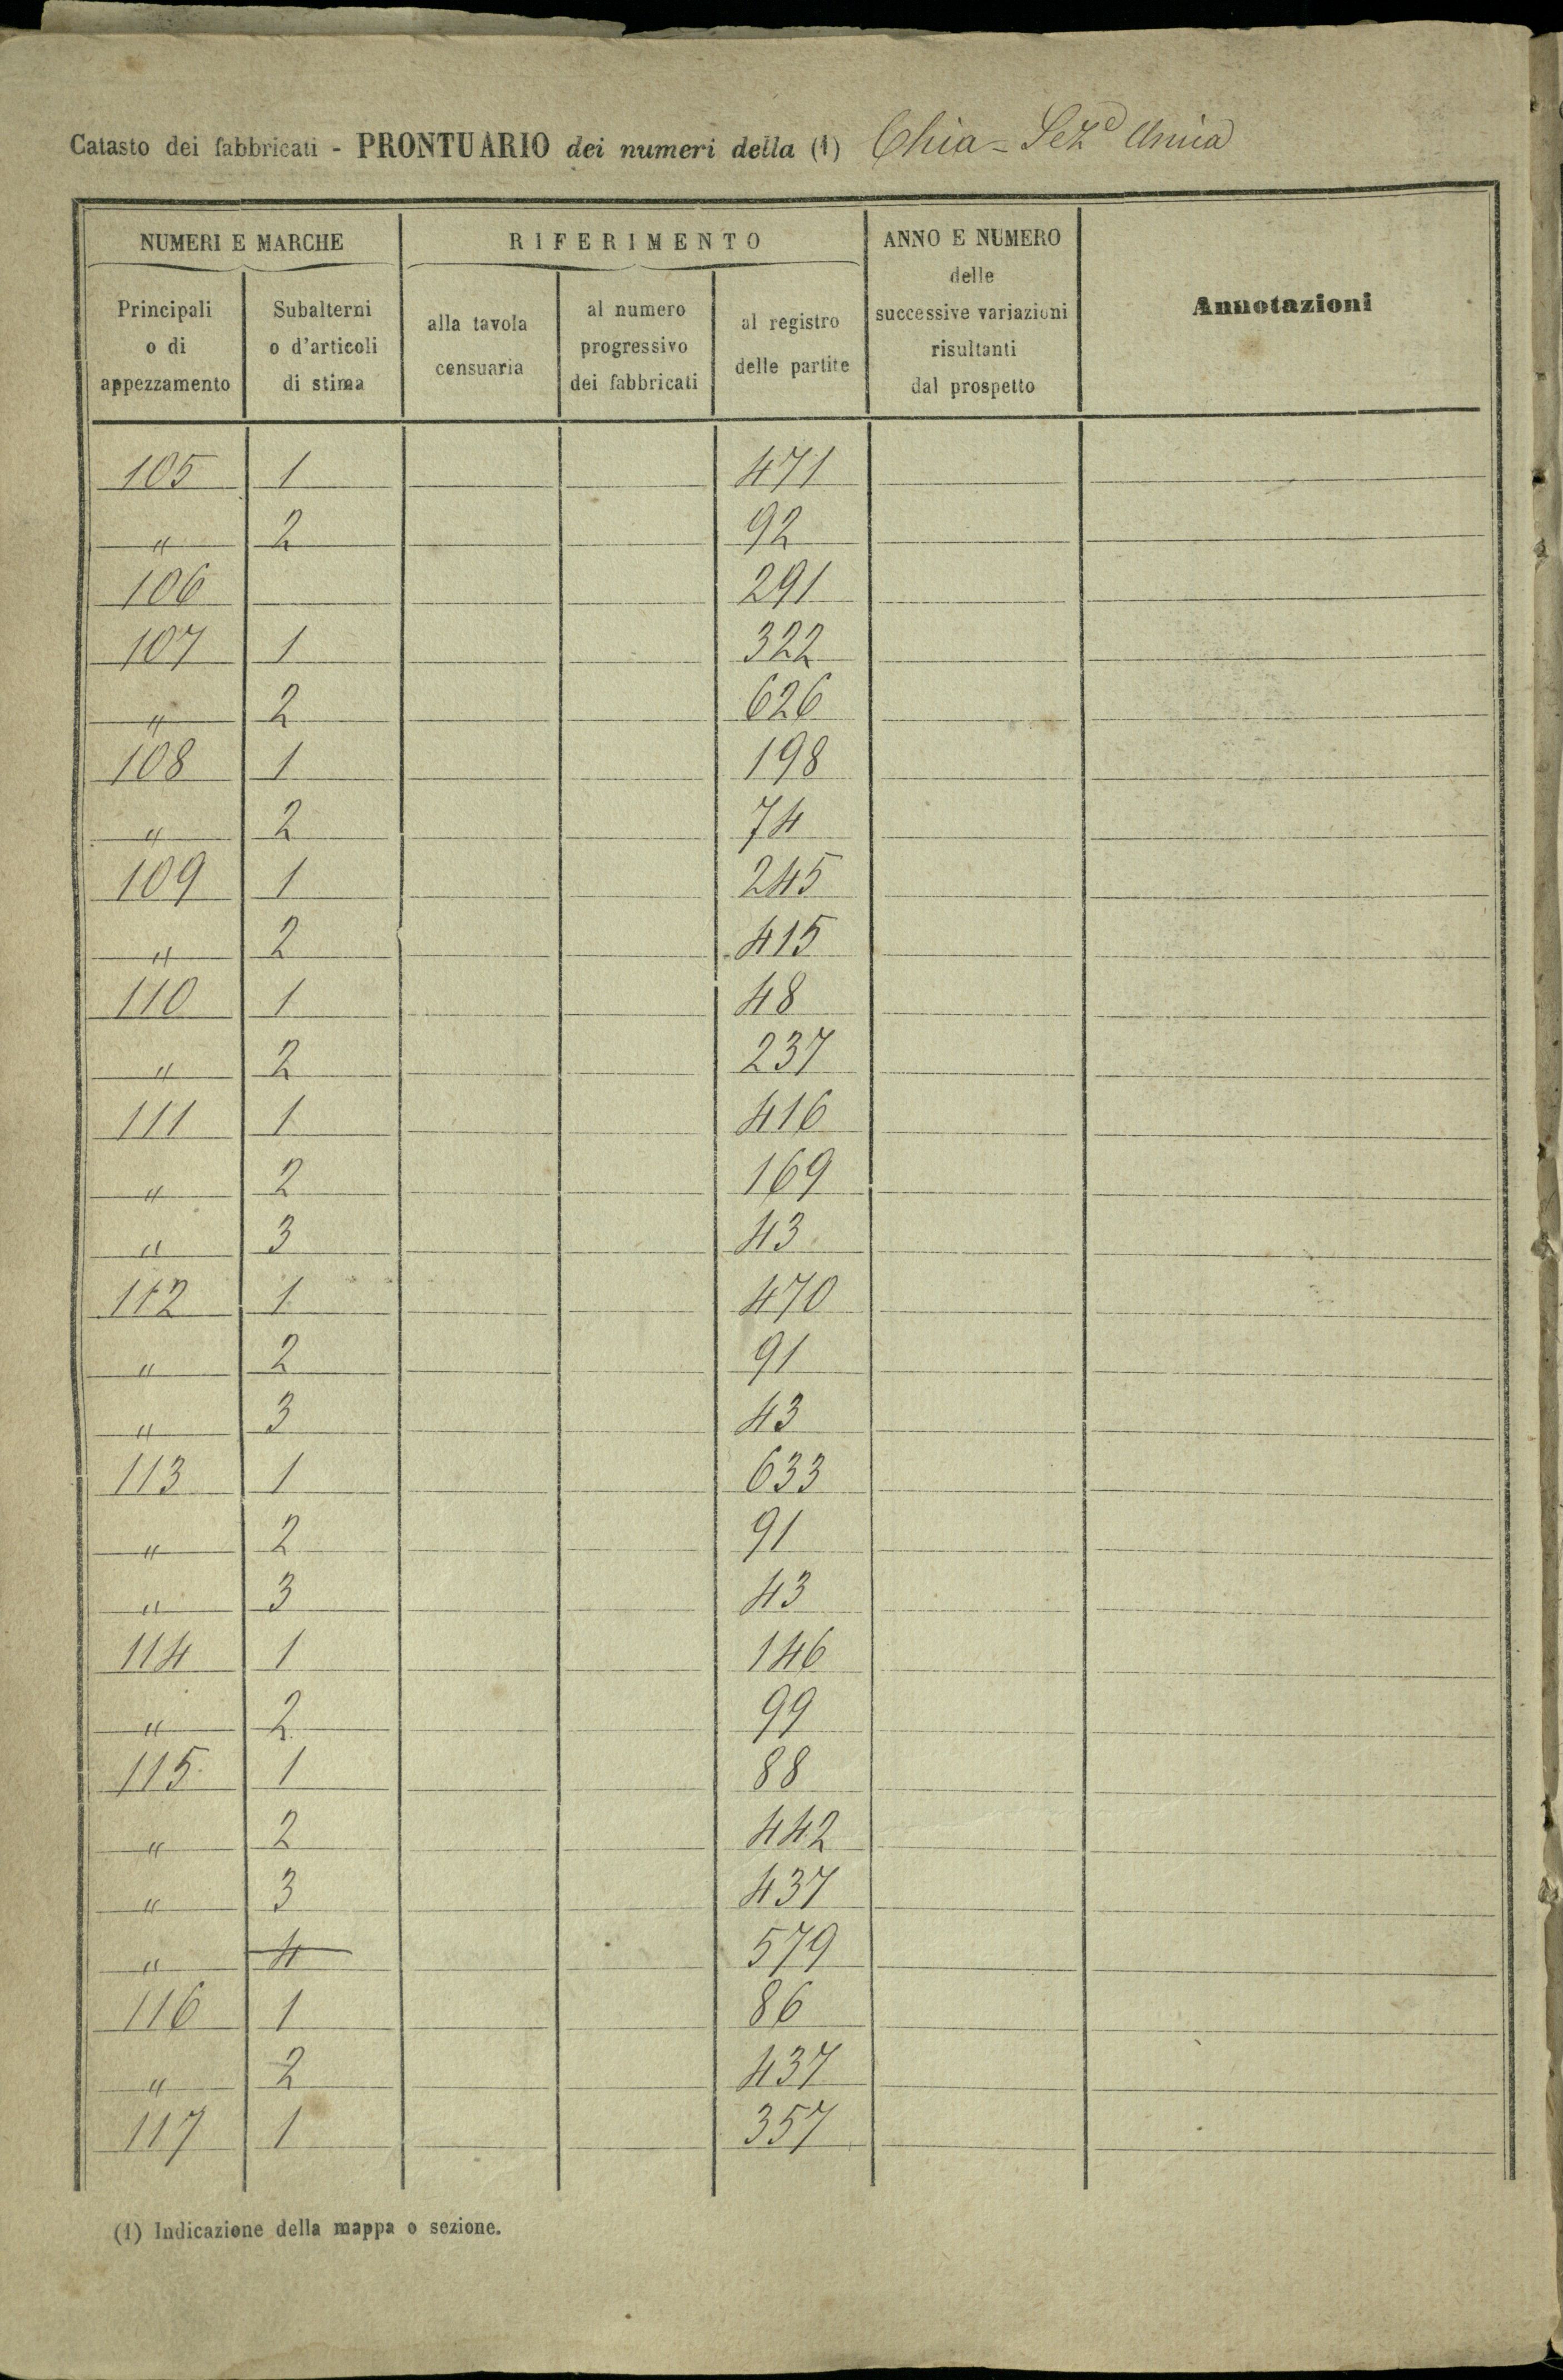 Catasto dei fabbricati - PRONTUARIO dei numeri della (1) Chia = Sez.e Unica
NUMERI E MARCHE
RIFERIMENTO
ANNO E NUMERO
delle
successive variazioni
risultanti
dal prospetto
Annotazioni
Principali
o di
appezzamento
Subalterni
o d'articoli
di stima
alla tavola
censuaria
al numero
progressivo
dei fabbricati
al registro
delle partite
105 1 471
" 2 92
106 291
107 1 322
" 2 626
108 1 198
" 2 74
109 1 245
" 2 415
110 1 48
" 2 237
111 1 416
" 2 169
" 3 43
112 1 470
" 2 91
" 3 43
113 1 633
" 2 91
" 3 43
114 1 146
" 2 99
115 1 88
" 2 442
" 3 437
" 4 579
116 1 86
" 2 437
117 1 357
(1) Indicazione della mappa o sezione.